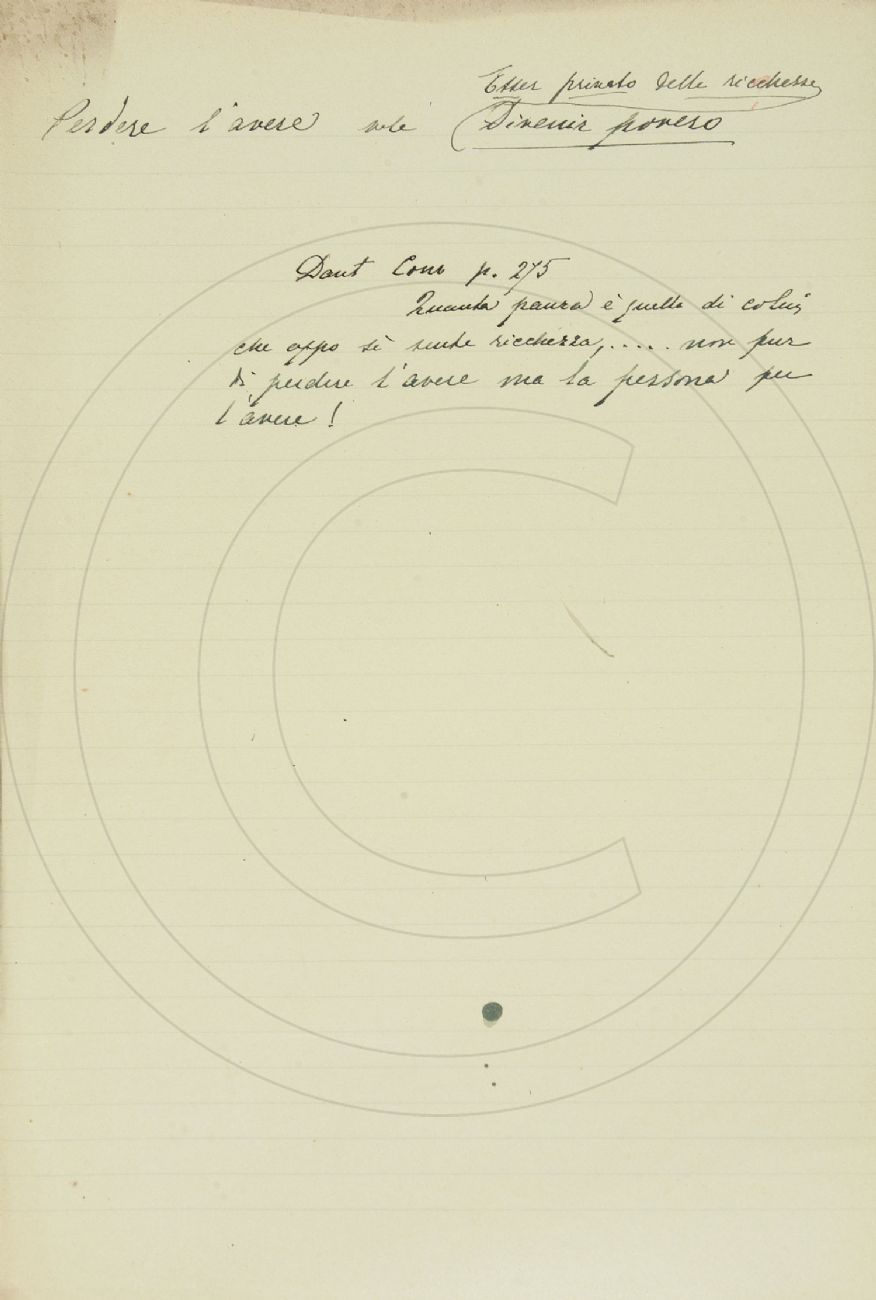 Esser privato delle ricchesse
Perdere l'avere vale Divenir povero
Dant Conv p. 275
Quanta paura è quella di colui,
che appo sè sente ricchezza, ..... non pur
di perdere l'avere ma la persona per
l'avere !